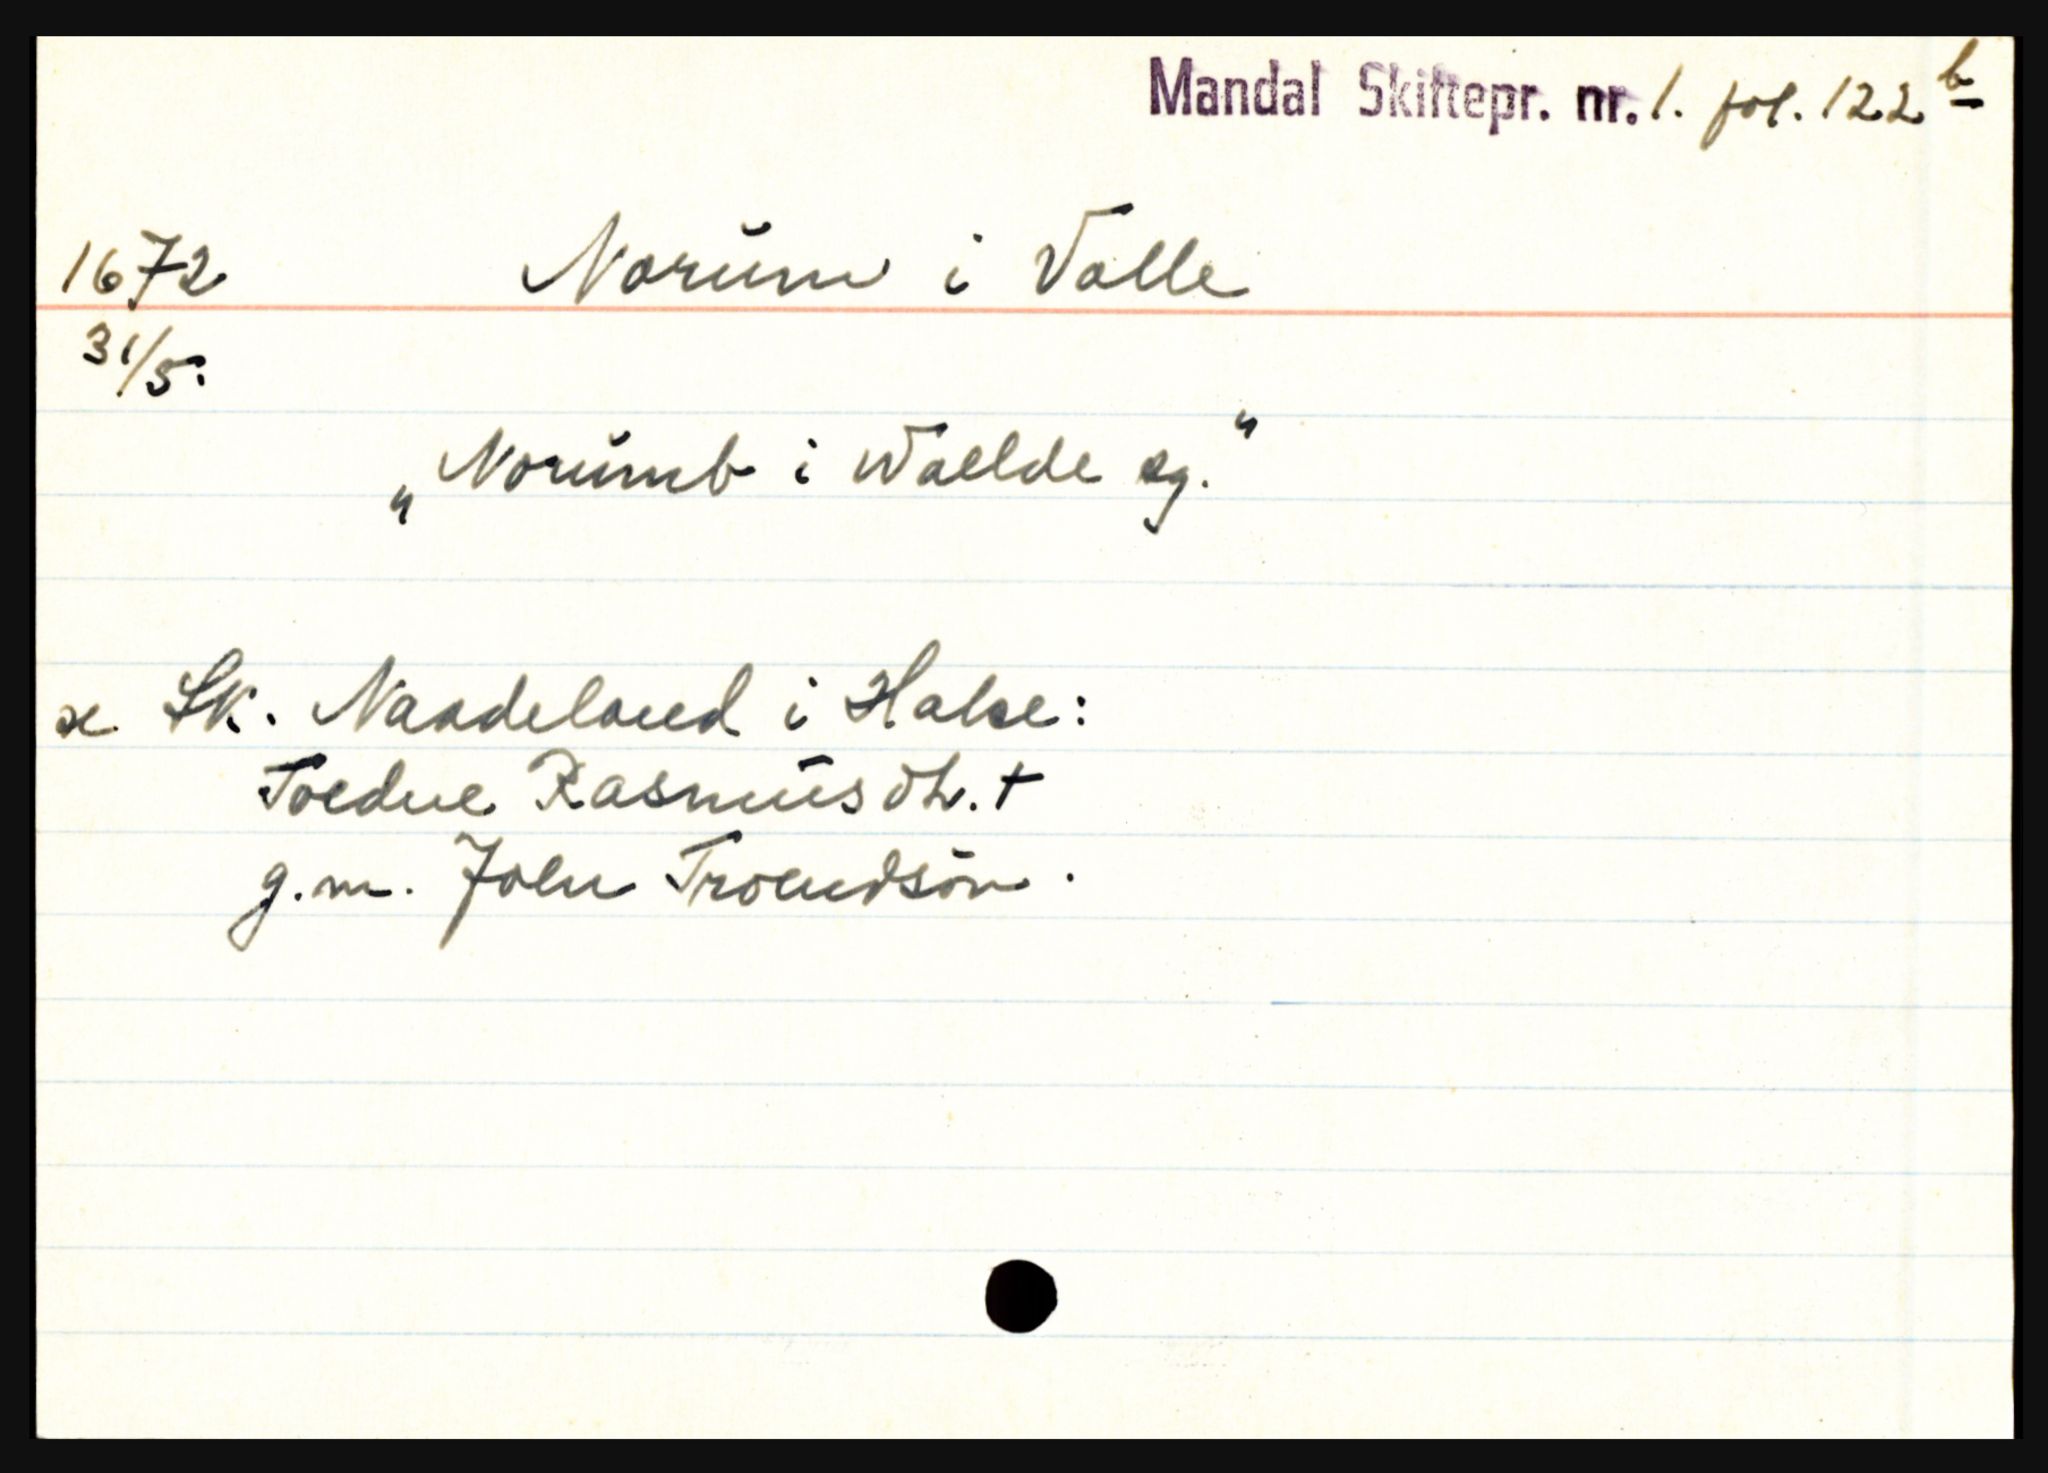 Mandal Skiftepr. nr. 1. fol. 122 b
1672 Norum i Valle
31/5.
„Norumb i Waelde sg."
x Sk. Naadeland i Halse:
Toedne Rasmusdtr. †
g.m. John Troendsön.